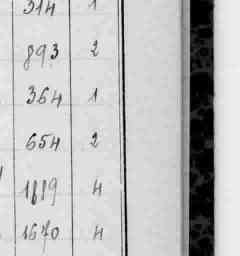 314 1
893 2
364 1
654 2
1619 4
1670 4